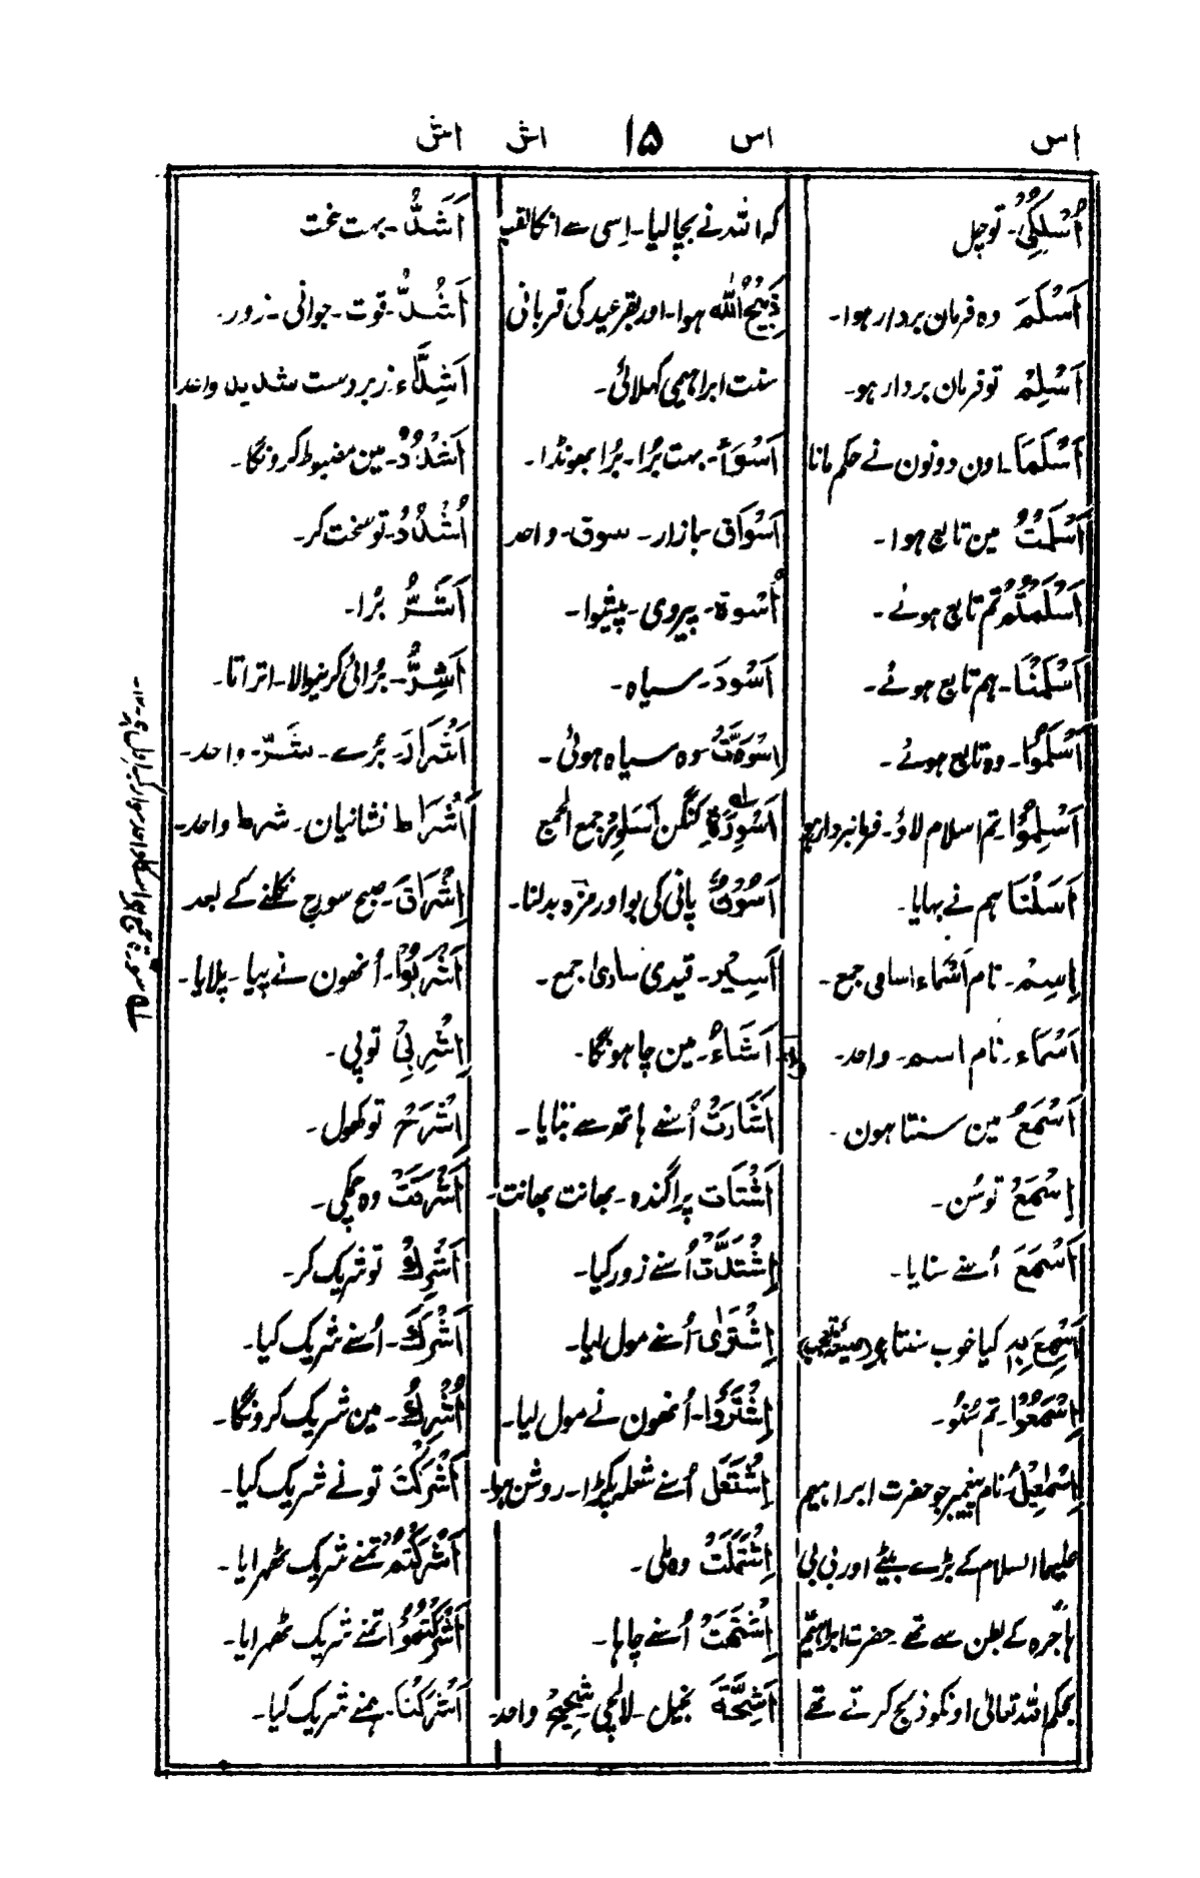 اس
اس
۱۵
اش
اش
اُسْلُكِیْ۔ تو چل
اَسْلَمَ وہ فرمان بردار ہوا۔
اَسْلِمْ تو فرمان بردار ہو۔
اَسْلَمَا۔ اون دونون نے حکم مانا
اَسْلَمْتُ مین تابع ہوا۔
اَسْلَمْتُمْ تم تابع ہوئے۔
اَسْلَمْنَا۔ ہم تابع ہوئے۔
اَسْلَمُوْا۔ وہ تابع ہوئے۔
اَسْلِمُوْا۔ تم اسلام لاؤ۔ فرمانبردار ہو
اَسَلْنَا ہم نے بہایا۔
اِسِمْ۔ نام اَسْمَاء اسامی جمع۔
اَسْمَاء۔ نام اسم۔ واحد۔
اَسْمَعُ مین سنتا ہون۔
اِسْمَعْ تو سُن۔
اَسْمَعَ اُسنے سنایا۔
اَسْمِعْ بِهٖ کیا خوب سنتا ہے (صیغۂ تعجب)
اِسْمَعُوْا۔ تم سُنُو۔
اِسْمٰعِیْلُ۔ نام پیغمبر جو حضرت ابراہیم
علیہما السلام کے بڑے بیٹے اور بی بی
ہاجرہ کے بطن سے تھے۔ حضرت ابراہیمؑ
بحکم اللہ تعالیٰ اونکو ذبح کرتے تھے
کہ اللہ نے بچا لیا۔ اِسی سے انکا لقب
ذَبِیْحُ اللہ ہوا۔ اور بقر عید کی قربانی
سنت ابراہیمی کہلائی۔
اَسْوَأ۔ بہت بُرا۔ بُرا بھونڈا۔
اَسْوَاق۔ بازار۔ سوق۔ واحد
اُسْوَة۔ پیروی۔ پیشوا۔
اَسْوَدَ۔ سیاہ۔
اِسْوَدَّتْ وہ سیاہ ہوئی۔
اَسْوِرَةٌ کنگن اَسَاوِرُ جمع الجمع
اَسُوْنٌ پانی کی بو اور مزہ بدلنا۔
اَسِیْر۔ قیدی۔ اساریٰ جمع۔
اَشَاءُ۔ مین چاہونگا۔
اَشَارَتْ اُسنے ہاتھ سے بتایا۔
اَشْتَات پراگندہ۔ بھانت بھانت۔
اِشْتَدَّتْ اُسنے زور کیا۔
اِشْتَرٰی اُسنے مول لیا۔
اِشْتَرَوْا۔ اُنھون نے مول لیا۔
اِشْتَعَلَ اُسنے شعلہ پکڑا۔ روشن ہوا۔
اِشْتَمَلَتْ وہ ملی۔
اِشْتَهَتْ اُسنے چاہا۔
اَشِحَّةً بخیل۔ لالچی۔ شَحِیْحٌ واحد۔
اَشَدُّ۔ بہت سخت
اَشُدَّ۔ قوت۔ جوانی۔ زور۔
اَشِدَّاء۔ زبردست شدید واحد
اَشْدُدُ۔ مین مضبوط کرونگا۔
اُشْدُدْ۔ تو سخت کر۔
اَشَرُّ بُرا۔
اَشِرٌ۔ بُرائی کرنیوالا۔ اتراتا۔
اَشْرَار۔ بُرے۔ شَرّ۔ واحد۔
اَشْرَاط نشانیان۔ شرط واحد۔
اِشْرَاقَ۔ صبح سورج نکلنے کے بعد
اُشْرِبُوْا۔ اُنھون نے پیا۔ پلایا۔
اِشْرَبِیْ تو پی۔
اِشْرَحْ تو کھول۔
اَشْرَقَتْ وہ چمکی۔
اَشْرِكْ تو شریک کر۔
اَشْرَكَ۔ اُسنے شریک کیا۔
اُشْرِكُ۔ مین شریک کرونگا۔
اَشْرَكْتَ تو نے شریک کیا۔
اَشْرَكْتُمْ تمنے شریک ٹھرایا۔
اَشْرَكْتُمُوْا تمنے شریک ٹھرایا۔
اَشْرَكْنَا۔ ہمنے شریک کیا۔